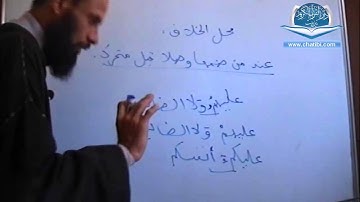 محل الخلاف:
عند من ضمها وصلا قبل متحرك.
عليهمُ ولا الض
عليهمْ ولا الضا
عليكمُ أنفسكم
www.chatibi.com